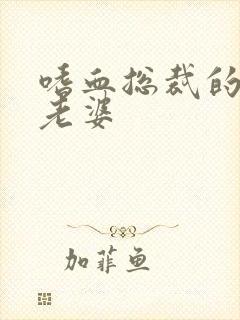 嗜血总裁的
老婆
加菲鱼